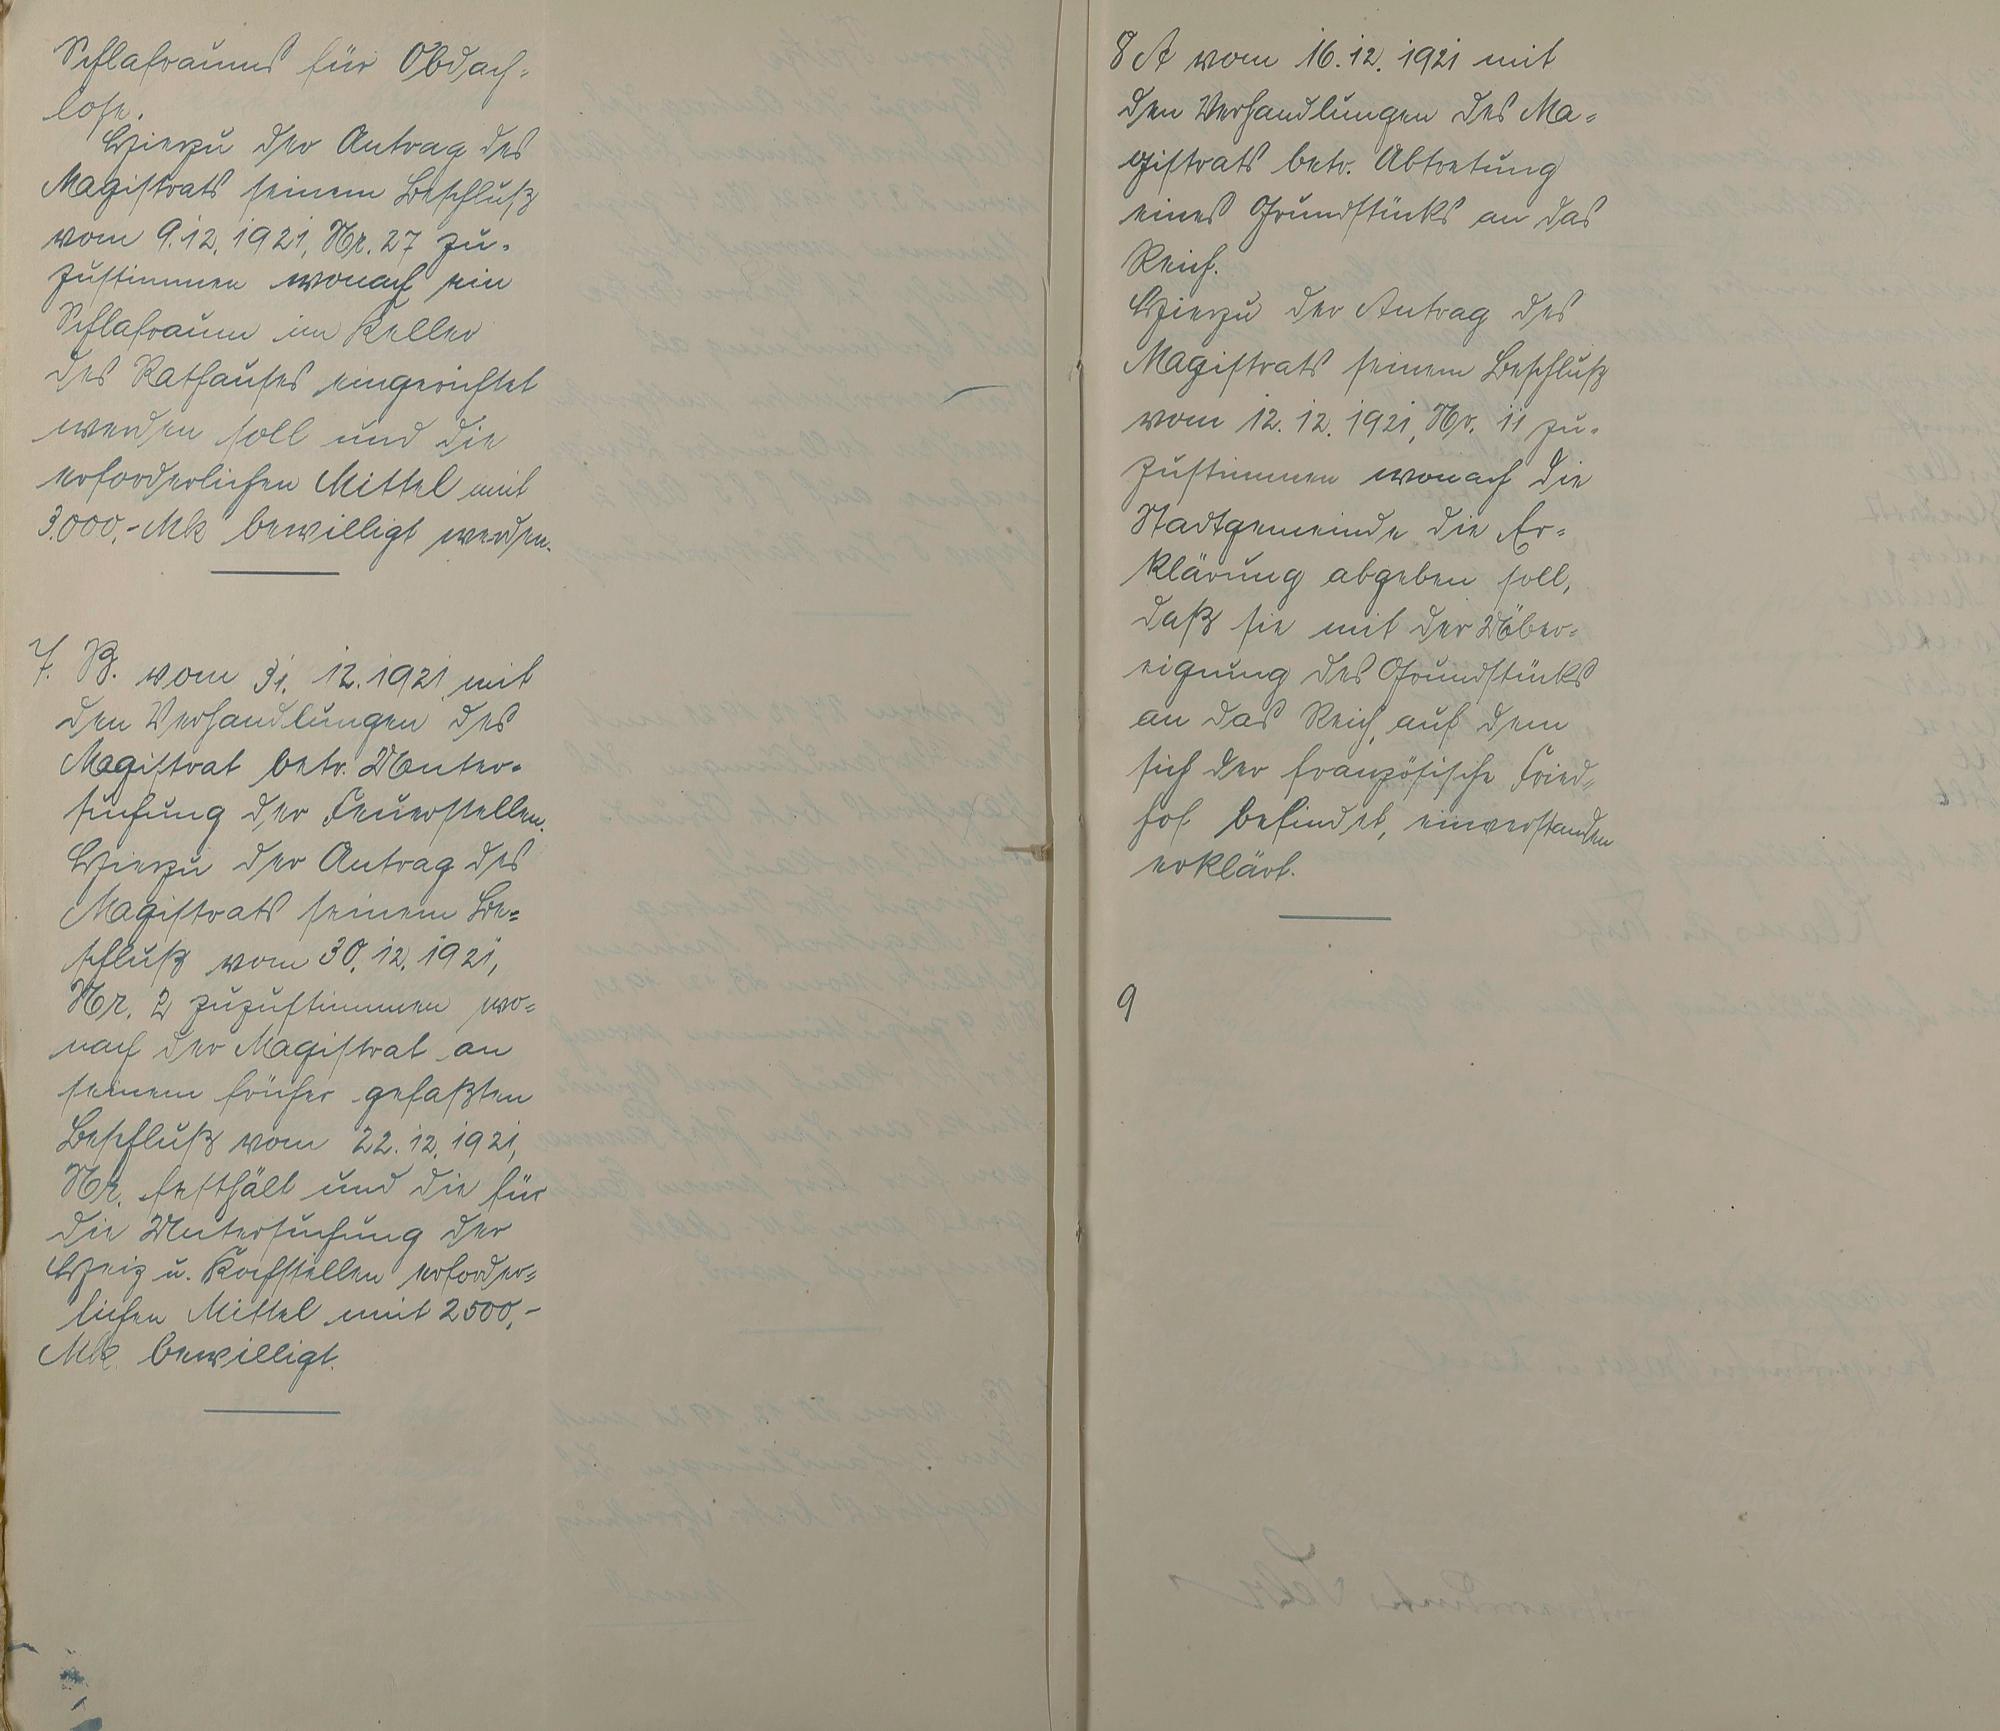 Schlafraums für Obdach-
lose.
Hierzu der Antrag des
Magistrats seinem Beschluß
vom 9.12.1921, Nr. 27 zu-
zustimmen wonach ein
Schlafraum im Keller
des Rathauses eingerichtet
werden soll und die
erforderlichen Mittel mit
3.000,- Mk bewilligt werden.
7. B. vom 31.12.1921 mit
den Verhandlungen des
Magistrat betr. Unter-
suchung der Feuerstellen.
Hierzu der Antrag des
Magistrats seinem Be-
schluß vom 30.12.1921,
Nr. 2 zuzustimmen wo-
nach der Magistrat an
seinem früher gefaßten
Beschluß vom 22.12.1921,
Nr. festhält und die für
die Untersuchung der
Heiz u. Kochstellen erforder-
lichen Mittel mit 2500,-
Mk. bewilligt.
8 A vom 16.12.1921 mit
den Verhandlungen des Ma-
gistrats betr. Abtretung
eines Grundstücks an das
Reich.
Hierzu der Antrag des
Magistrats seinem Beschluß
vom 12.12.1921, Nr. 11 zu-
zustimmen wonach die
Stadtgemeinde die Er-
klärung abgeben soll,
daß sie mit der Über-
eignung des Grundstücks
an das Reich, auf dem
sich der französische Fried-
hof befindet, einverstanden
erklärt.
9